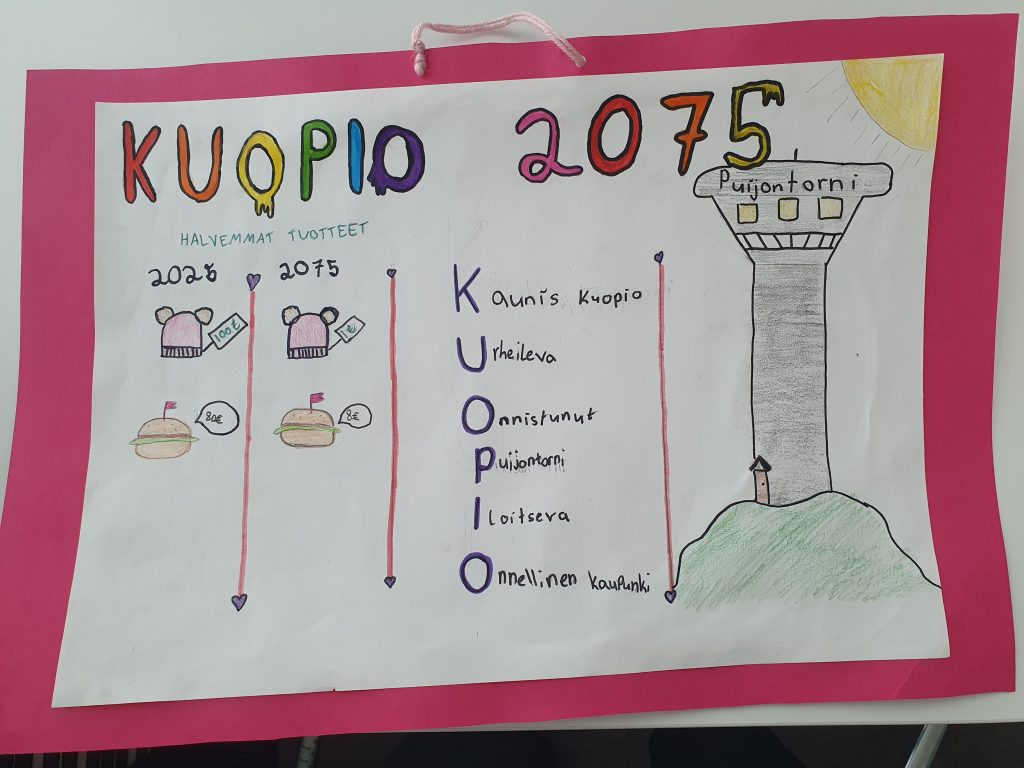 KUOPIO 2075
Puijontorni
HALVEMMAT TUOTTEET
2025 2075
100€ 1€
80€ 8€
Kaunis Kuopio
Urheileva
Onnistunut
Puijontorni
Iloitseva
Onnellinen kaupunki